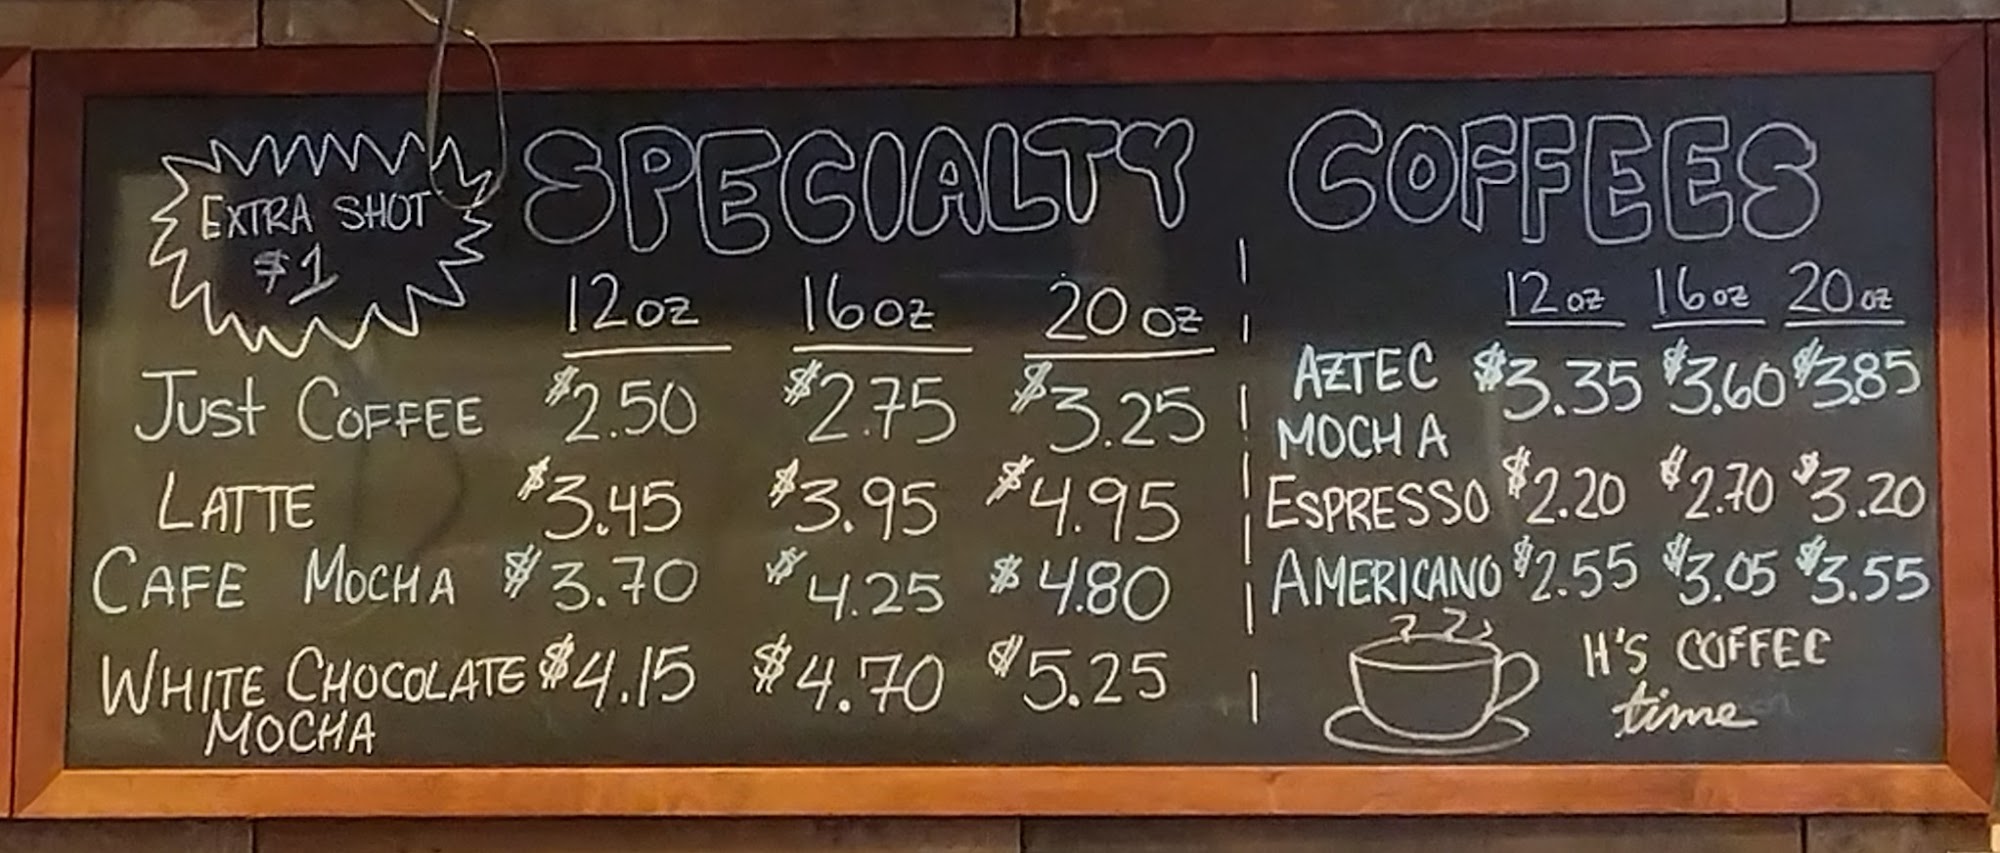 EXTRA SHOT
$1
SPECIALTY COFFEES
12oz 16oz 20oz
JUST COFFEE $2.50 $2.75 $3.25
LATTE $3.45 $3.95 $4.95
CAFE MOCHA $3.70 $4.25 $4.80
WHITE CHOCOLATE $4.15 $4.70 $5.25
MOCHA
12oz 16oz 20oz
AZTEC $3.35 $3.60 $3.85
MOCHA
ESPRESSO $2.20 $2.70 $3.20
AMERICANO $2.55 $3.05 $3.55
H'S COFFEE
time